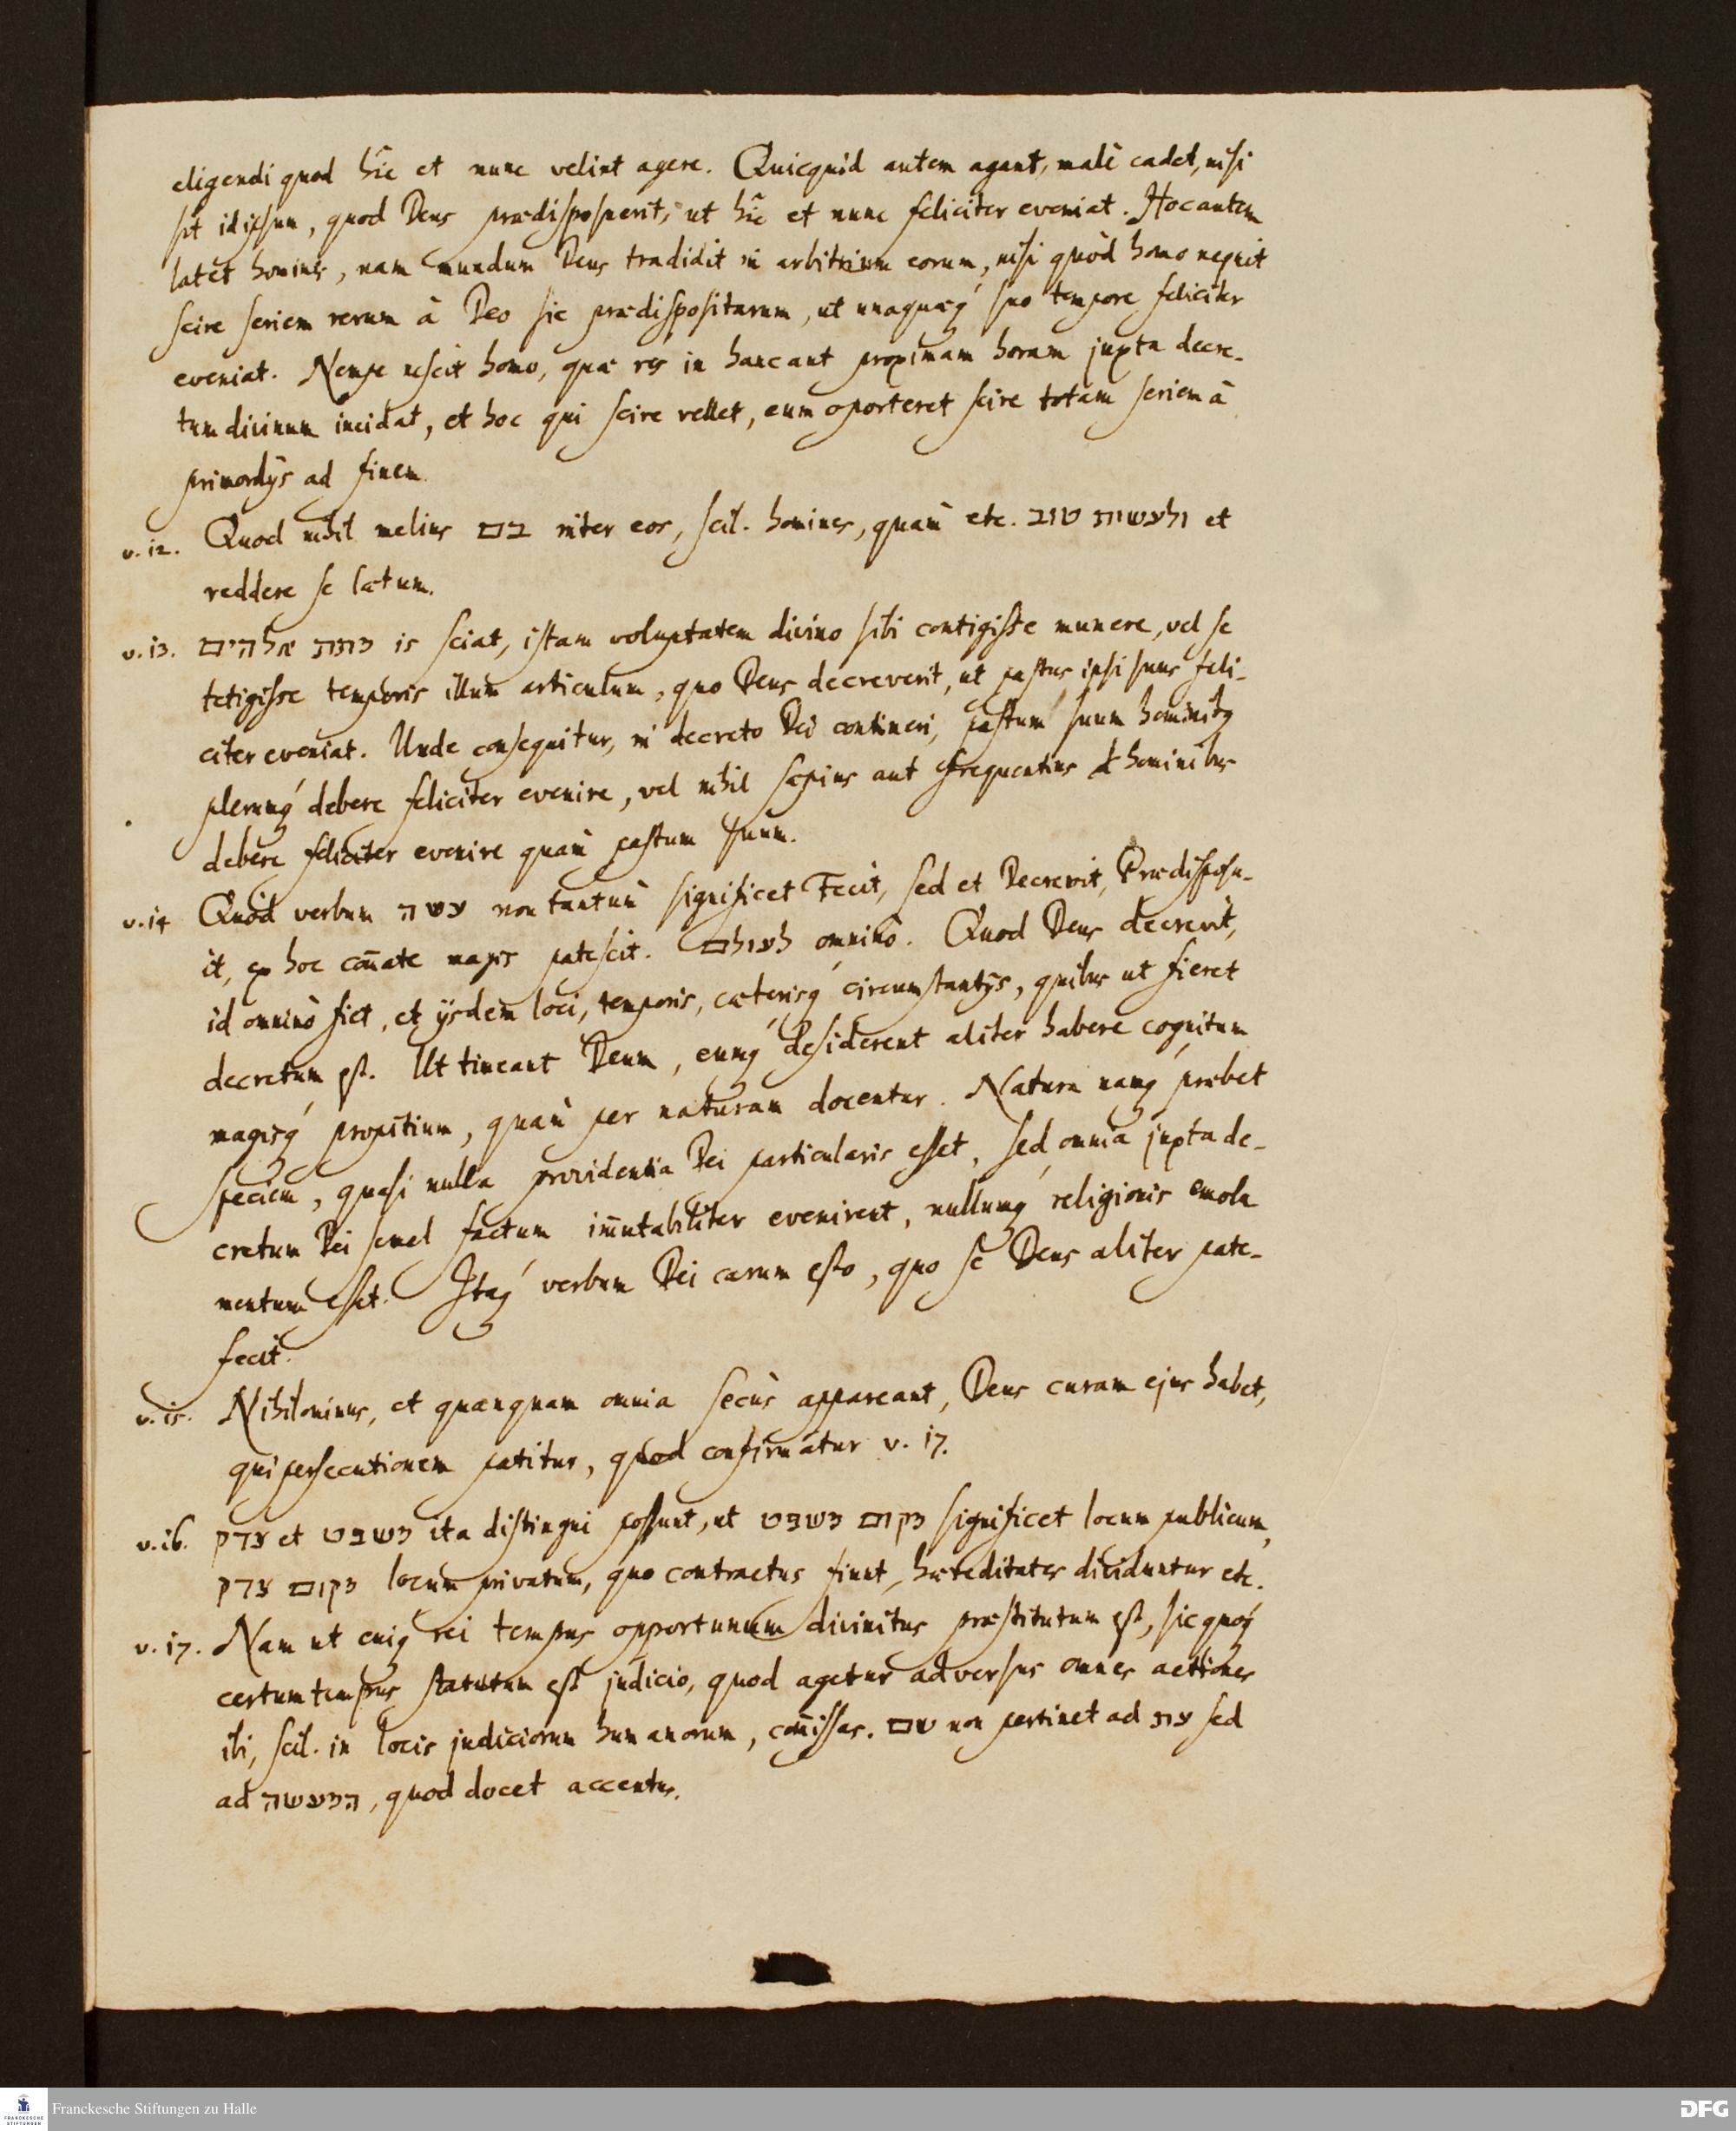 eligendi quod hîc et nunc velint agere. Quicquid autem agant, malè cadet, nisi
sit id ipsum, quod Deus prædisposuerit, ut hîc et nunc feliciter eveniat. Hoc autem
latet homines, nam mundum Deus tradidit in arbitrium eorum, nisi quòd homo nequit
scire seriem rerum à Deo sic prædispositarum, ut unaquæq́ suo tempore feliciter
eveniat. Nempe nescit homo, quæ res in hanc aut proximam horam juxta decre-
tum divinum incidat, et hoc qui scire vellet, eum oporteret scire totam seriem à
primordijs ad finem.
v. 12. Quod nihil melius בם inter eos, scil. homines, quàm etc. ולעשות טוב et
reddere se lætum.
v. 13. מתת אלהים is sciat, istam voluptatem divino sibi contigisse munere, vel se
tetigisse temporis illum articulum, quo Deus decreverit, ut pastus ipsi suus feli-
citer eveniat. Unde consequitur, in decreto Dei contineri, pastum suum hominibq
plerumq́ debere feliciter evenire, vel nihil sæpius aut frequentius hominibus
debere feliciter evenire quàm pastum suum.
v. 14 Quòd verbum עשה non tantùm significet Fecit, sed et Decrevit, Prædisposu-
it, ex hoc com̄ate magis patescit. לעולם omninò. Quod Deus decrevit,
id omninò fiet, et ijsdem loci, temporis, cæterisq́ circumstantijs, quibus ut fieret
decretum est. Ut timeant Deum, eumq́ desiderent aliter habere cognitum
magisq́ propitium, quàm per naturam docentur. Natura namq́ præbet
speciem, quasi nulla providentia Dei particularis esset, sed omnia juxta de-
cretum Dei semel factum im̄utabiliter evenirent, nullumq́ religionis emolu
mentum esset. Itaq́ verbum Dei carum esto, quo se Deus aliter pate-
fecit.
v. 15. Nihilominus, et quanquam omnia secùs appareant, Deus curam ejus habet,
qui persecutionem patitur, quod confirmatur v. 17.
v. 16. צדק et משפט ita distingui possunt, ut מקום משפט significet locum publicum,
מקום צדק locum privatum, quo contractus fiunt, hæreditates dividuntur etc.
v. 17. Nam ut cuiq rei tempus opportunum divinitus præstitutum est, sic quoq́
certum tempus statutum est judicio, quod agetur adversus omnes actiones
ibi, scil. in locis judiciorum humanorum, com̄issas. שם non pertinet ad עת sed
ad המעשה, quod docet accentus.
Franckesche Stiftungen zu Halle
FRANCKESCHE
STIFTUNGEN
DFG